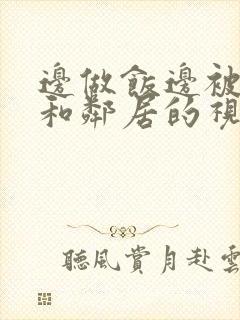 邊做飯邊被
和鄰居的視
聽風賞月赴雲